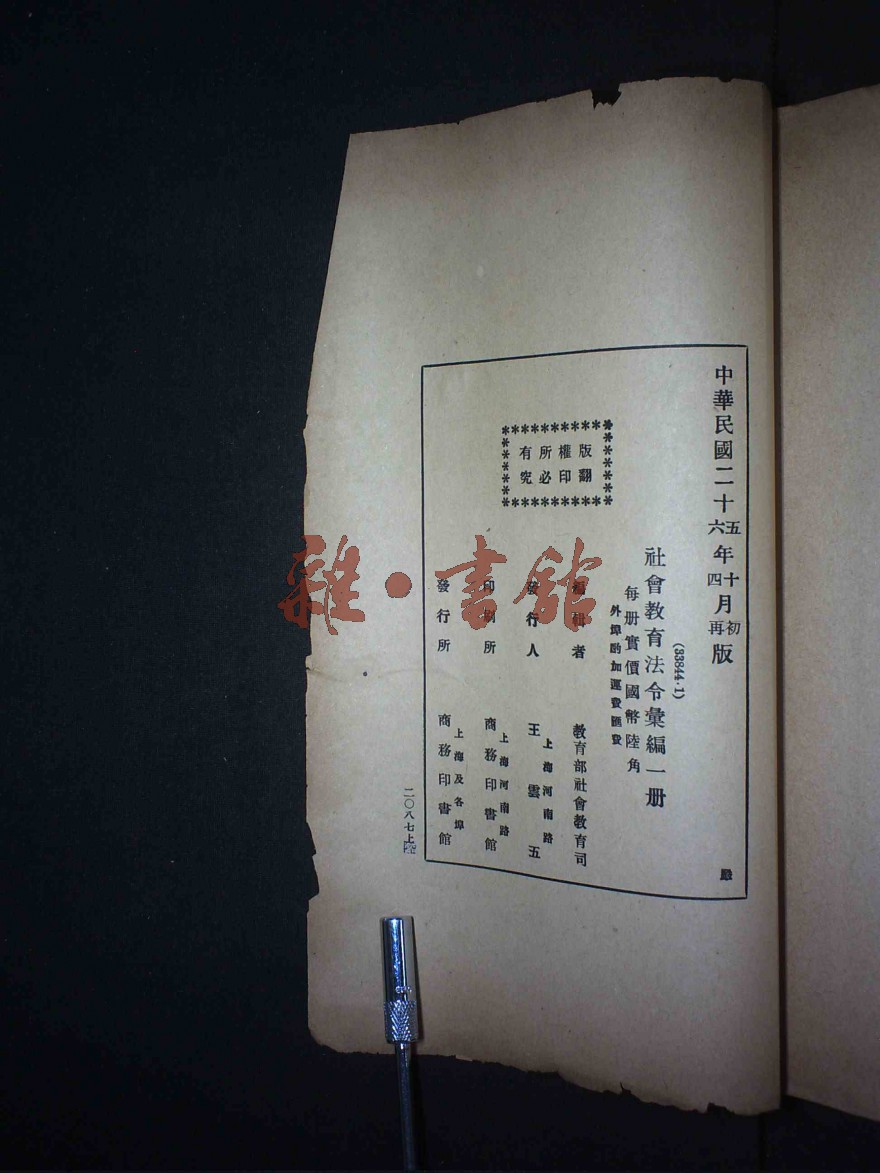 中華民國二十五六年十四月初再版
(33844·1)
社會教育法令彙編一册
每册實價國幣陸角
外埠酌加運費匯費
版權所有
翻印必究
編輯者 教育部社會教育司
上海河南路
發行人 王雲五
上海河南路
印刷所 商務印書館
上海及各埠
發行所 商務印書館
二〇八七上
雜·書館